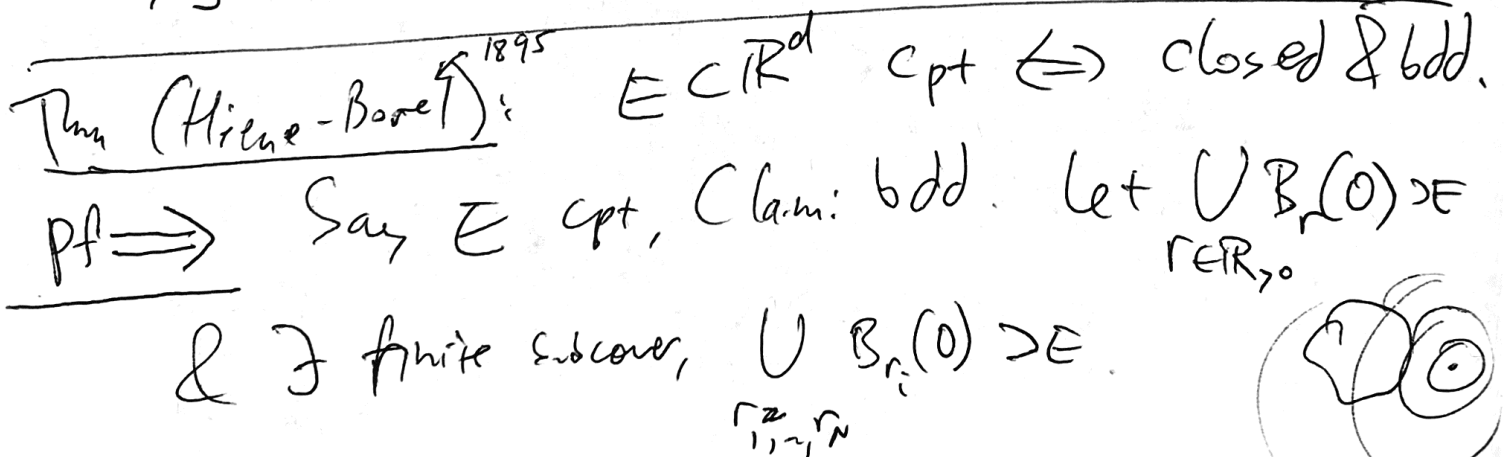 Thm (Hiene-Borel): 1895 E ⊂ ℝ^d cpt ⟺ closed & bdd.
pf ⟹ Say E cpt, Claim: bdd. Let ⋃_{r∈ℝ_{>0}} B_r(0) ⊃ E
& ∃ finite subcover, ⋃_{r_1,~,r_N} B_{r_i}(0) ⊃ E.